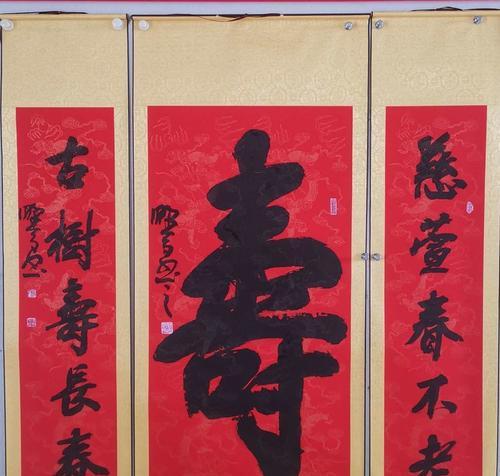 慈萱春不老
壽
古樹壽長春